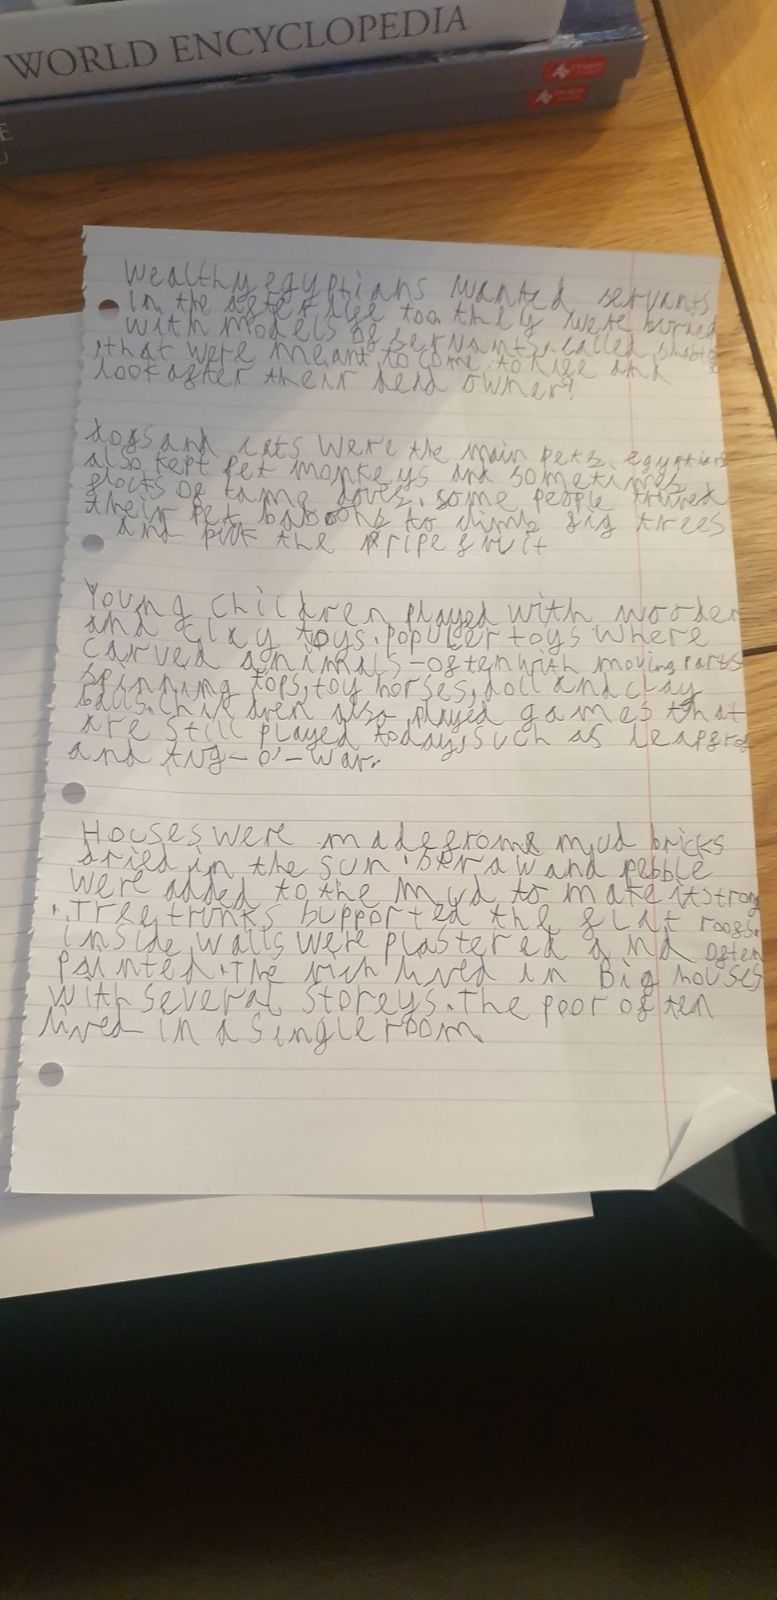 WORLD ENCYCLOPEDIA
Wealthy egyptians wanted servants
in the after life too. they were buried
with models of servants, called
, that were meant to come to life and
look after their dead owner!
dogs and cats were the main pets, egyptians
also kept pet monkeys and sometimes
flocks of tame doves. some people trained
their pet baboons to climb fig trees
and pick the ripe fruit
Young children played with wooden
and clay toys. populer toys where
carved animals - often with moving parts
spinning tops, toy horses, doll and clay
balls. children also played games that
are still played today, such as leapfrog
and tug-o'-war.
Houses were made from mud bricks
dried in the sun. straw and pebble
were added to the mud to make it strong
. Tree trunks supported the flat roofs.
inside walls were plastered and often
painted. The rich lived in Big houses
with several storeys. The poor often
lived in a single room.